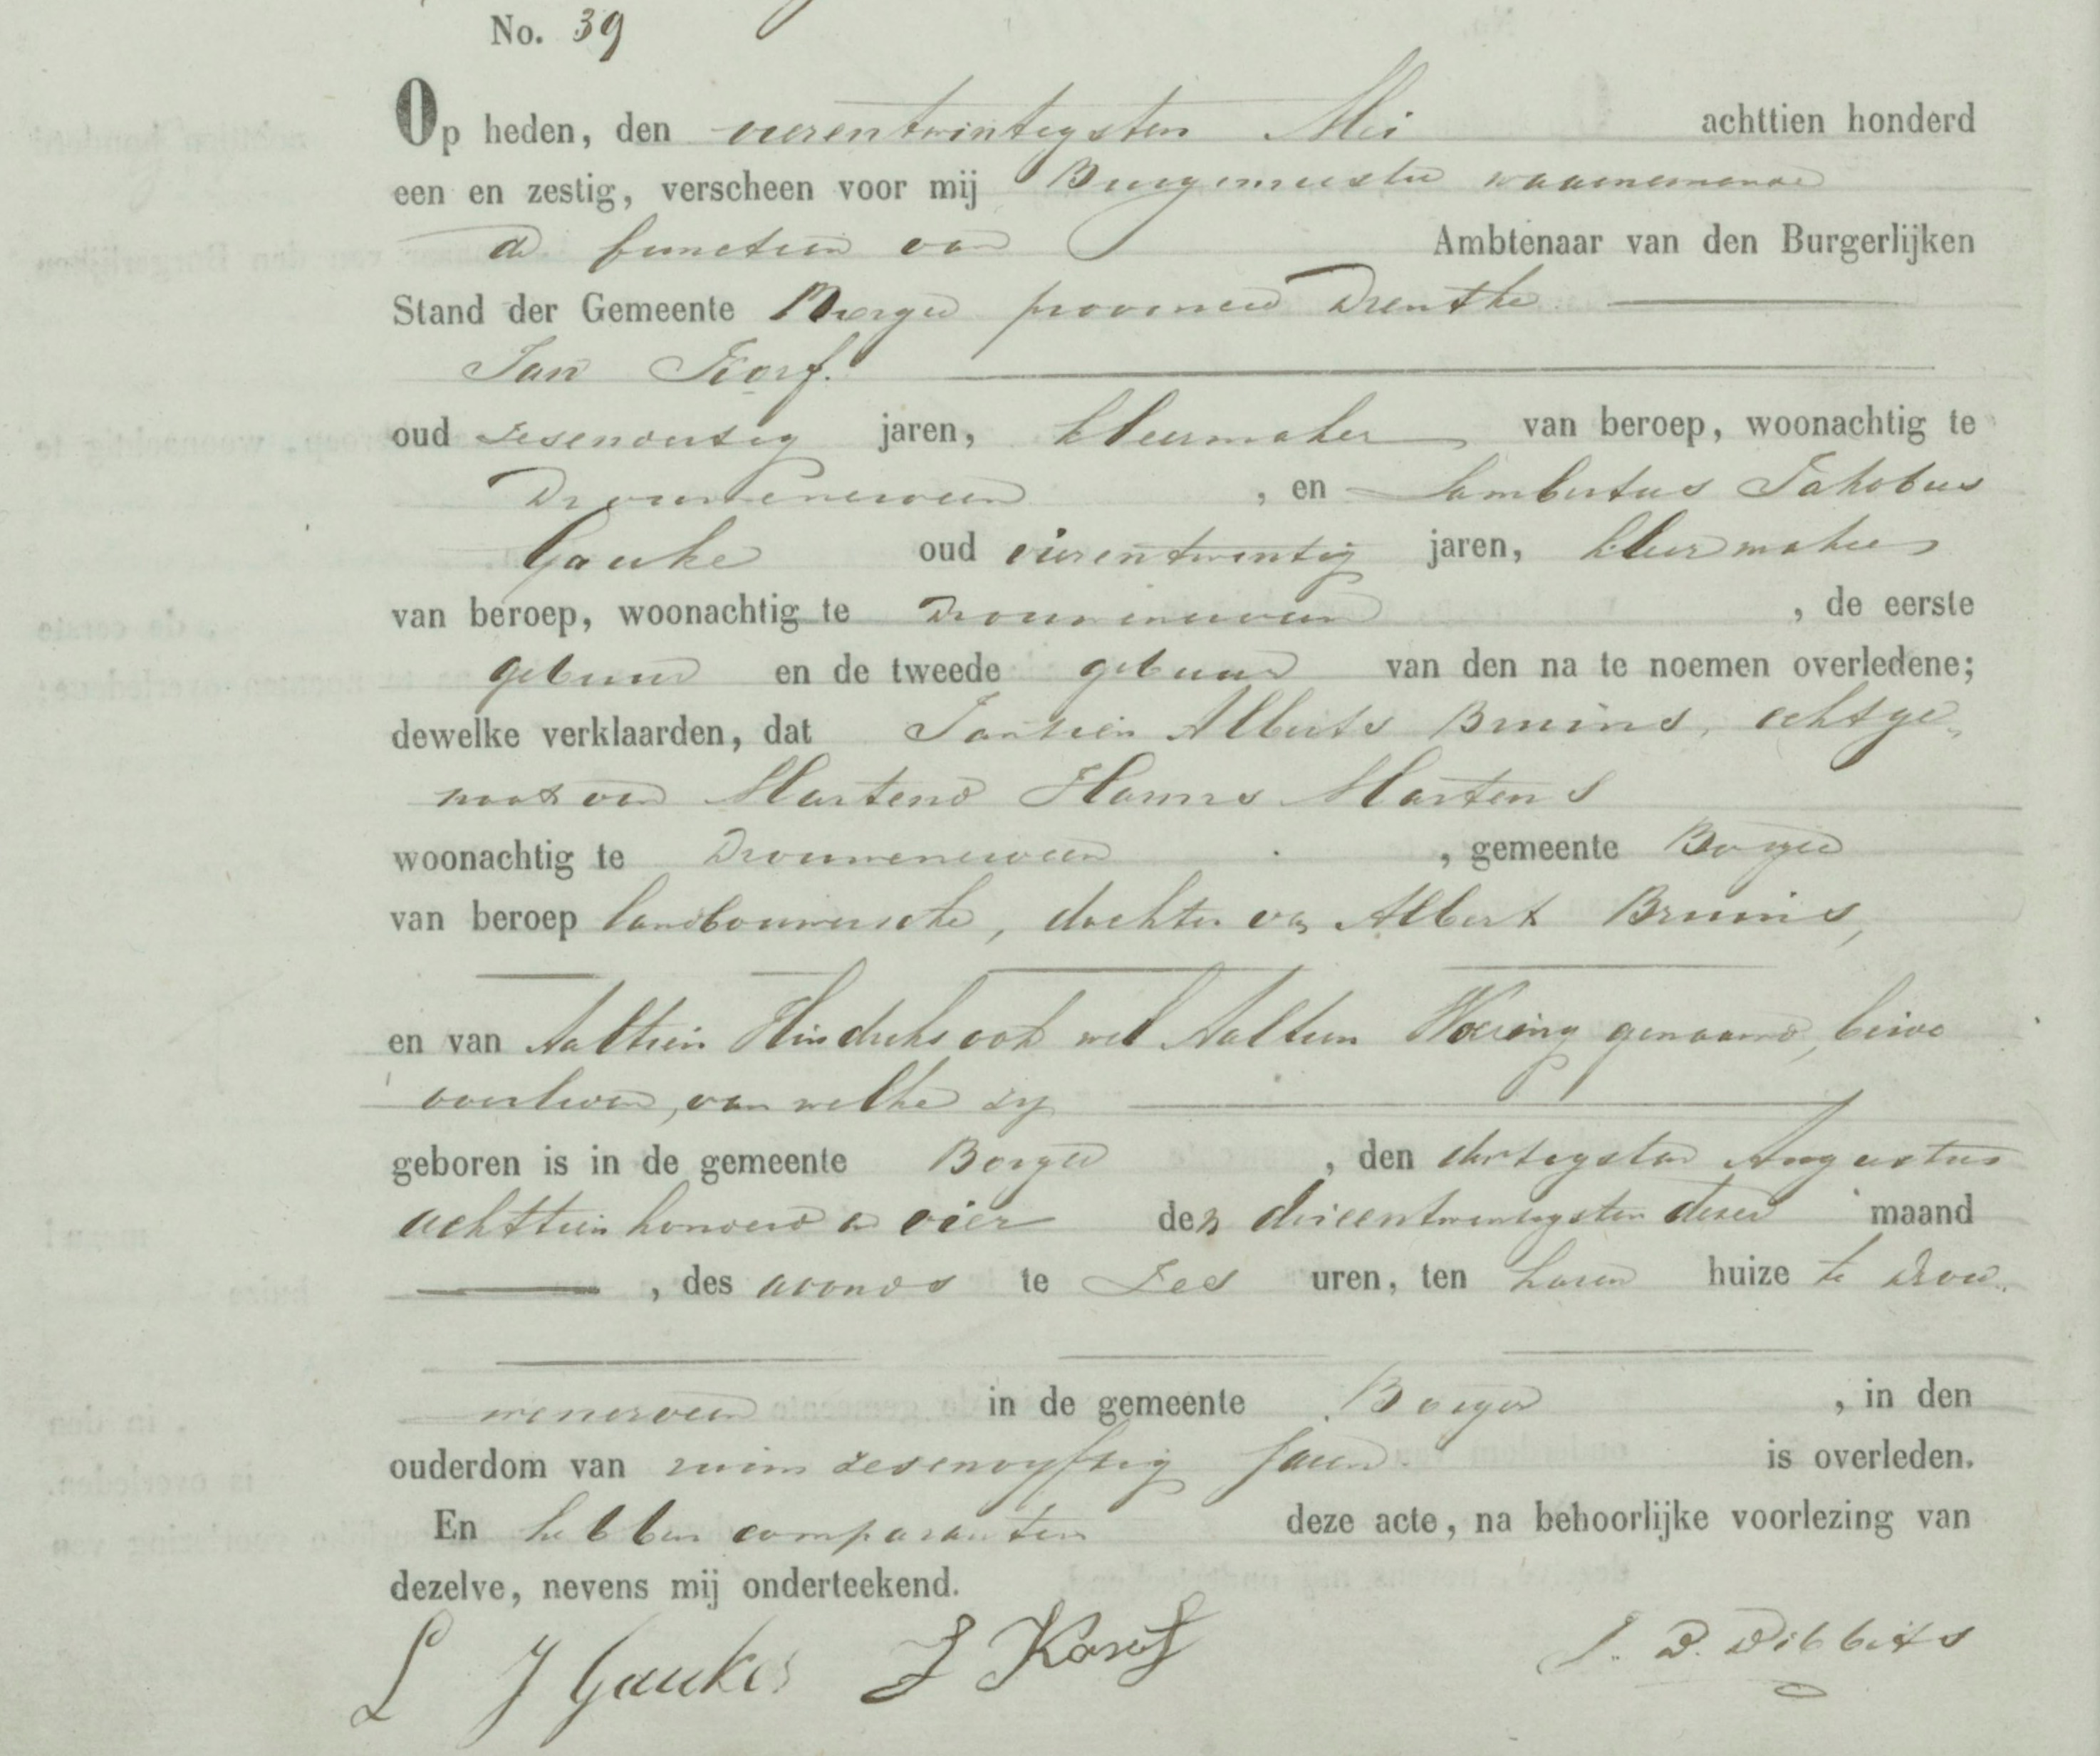 No. 39
Op heden, den vierentwintigsten Mei achttien honderd
een en zestig, verscheen voor mij Burgemeester waarnemende
de functien van Ambtenaar van den Burgerlijken
Stand der Gemeente Borger provincie Drenthe
Jan Korf.
oud zesendertig jaren, kleermaker van beroep, woonachtig te
Drouwenerveen , en Lambertus Jakobus
Gauke oud vierentwintig jaren, kleermaker
van beroep, woonachtig te Drouwenerveen , de eerste
gebuur en de tweede gebuur van den na te noemen overledene;
dewelke verklaarden, dat Jantien Alberts Bruins, echtge-
noot van Martend Harms Martens
woonachtig te Drouwenerveen , gemeente Borger
van beroep landbouwersche, dochter van Albert Bruins,
en van Aaltien Hindriks ook wel Aaltien Woering genaamd, beide
overleden, van welke zij
geboren is in de gemeente Borger , den dertigsten Augustus
achttien honderd en vier den drieentwintigsten dezer maand
, des avonds te Zes uren, ten haren huize te Drou-
wenerveen in de gemeente Borger , in den
ouderdom van ruim zesenvyftig Jaren. is overleden.
En hebben comparanten deze acte, na behoorlijke voorlezing van
dezelve, nevens mij onderteekend.
L J Gauke J Korf D. Dibbits